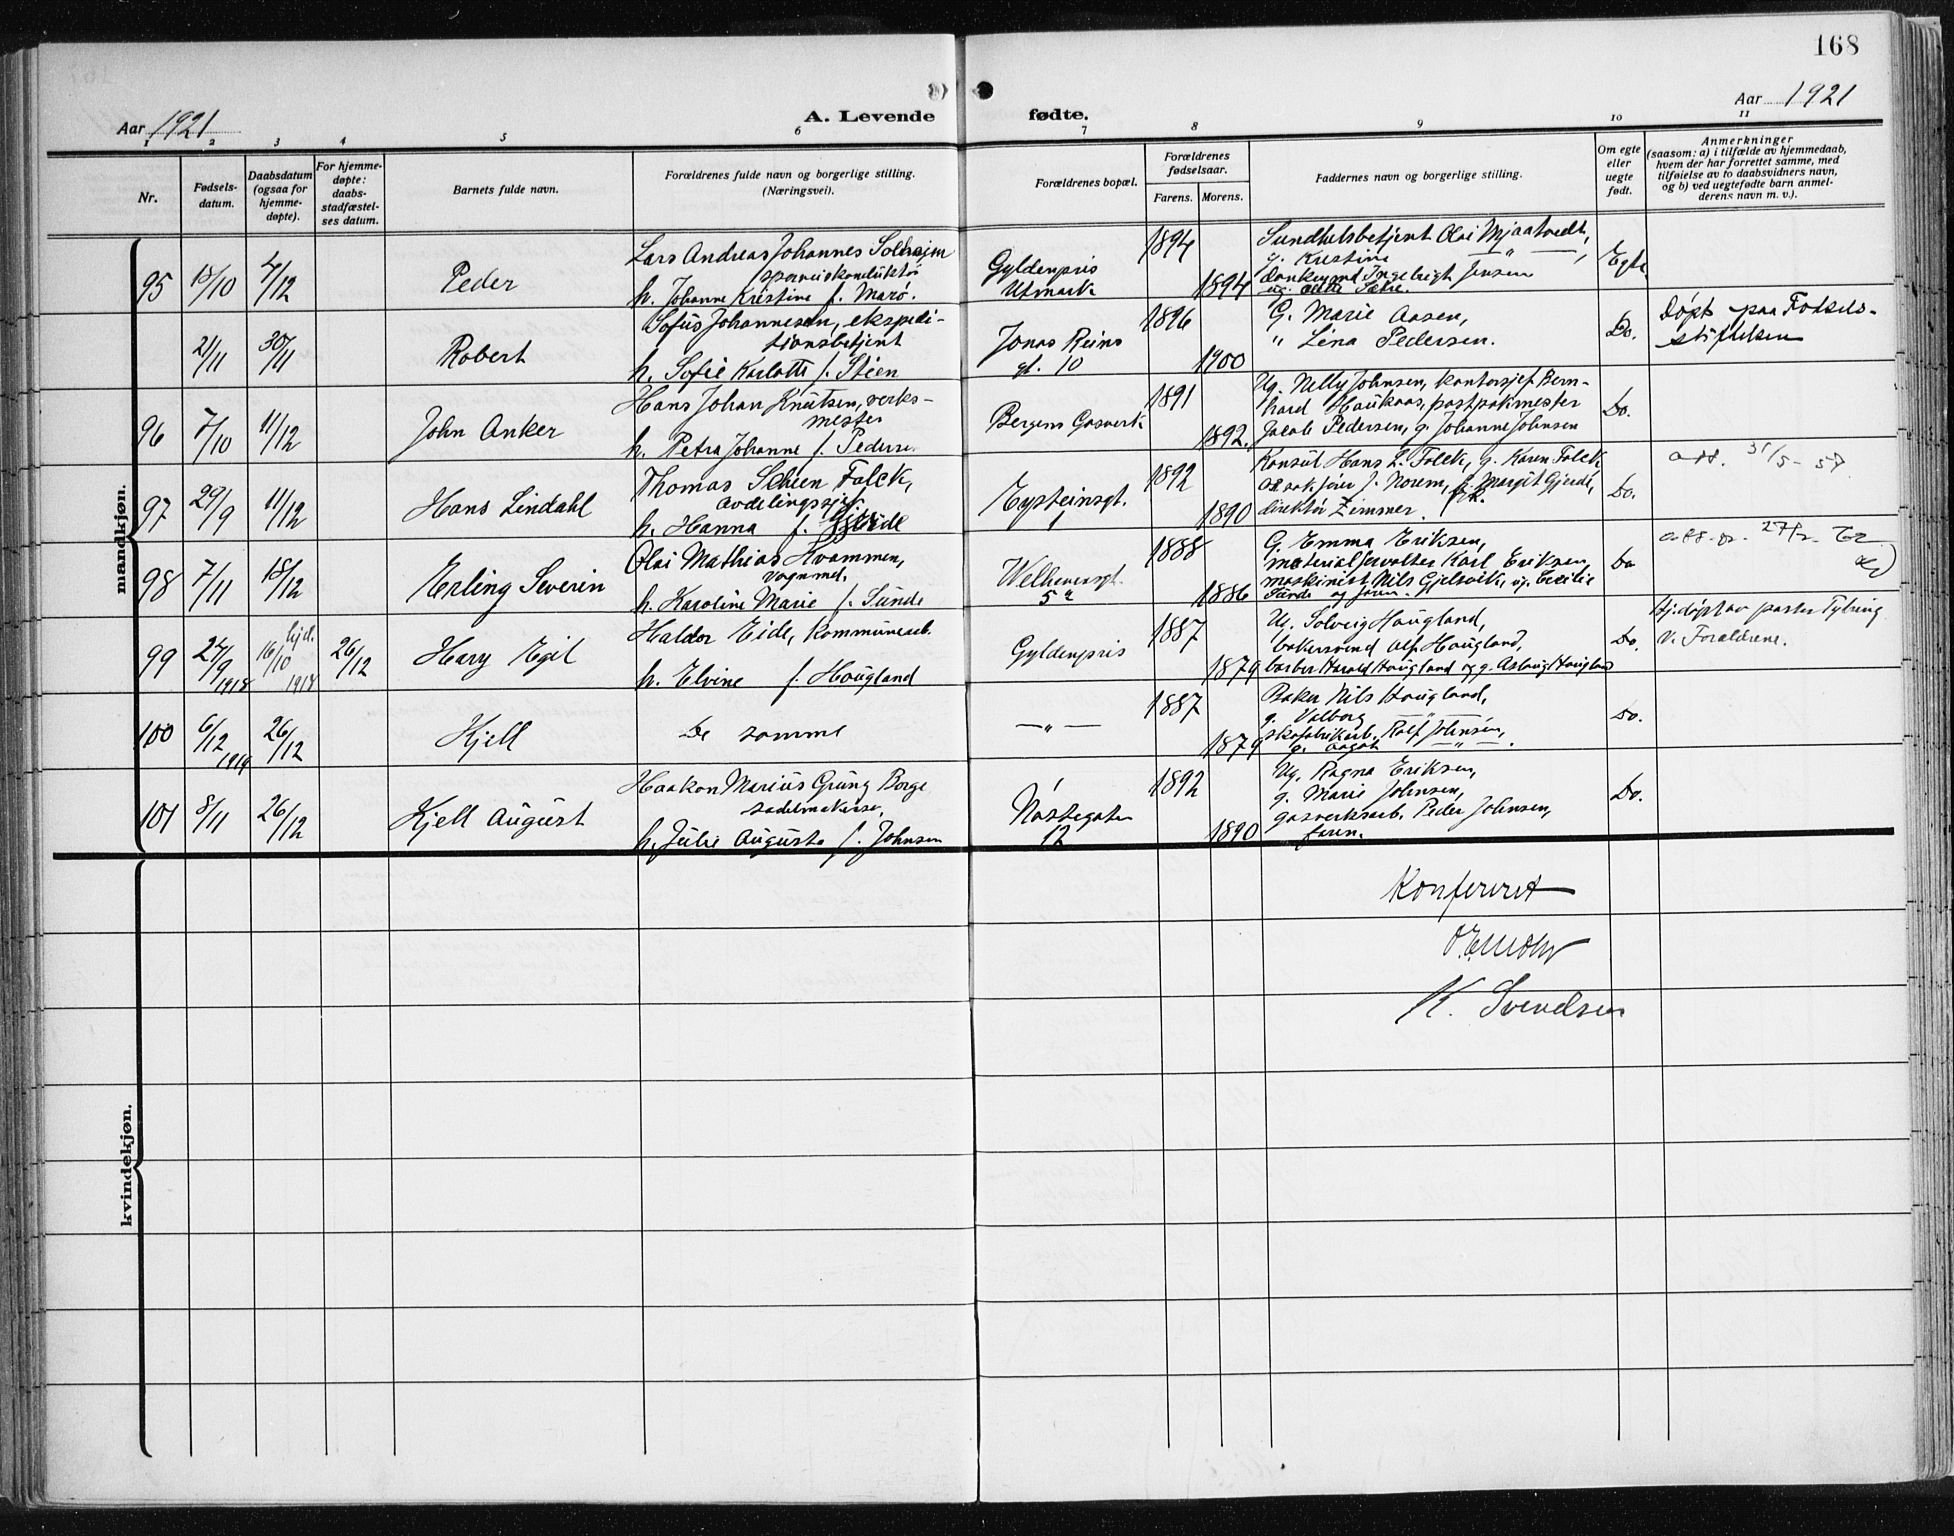 168
Aar 1921
A. Levende
fødte.
Aar 1921
1 2 3 4 5 6 7 8 9 10 11
Nr.
Fødsels-
datum.
Daabsdatum
(ogsaa for
hjemme-
døpte).
For hjemme-
døpte:
daabs-
stadfæstel-
ses datum.
Barnets fulde navn.
Forældrenes fulde navn og borgerlige stilling.
(Næringsvei).
Forældrenes bopæl.
Forældrenes
fødselsaar.
Farens. Morens.
Faddernes navn og borgerlige stilling.
Om egte
eller
uegte
født.
Anmerkninger
(saasom: a) i tilfælde av hjemmedaab,
hvem der har forrettet samme, med
tilføielse av to daabsvidners navn,
og b) ved uegtefødte barn anmel-
derens navn m. v.).
mandkjøn.
95
4/12
Peder
Lars Andreas Johannes Solheim
h. Johanne Kristine f. Marø.
Gyldenpris
Utmark
1894
1894
Sundhetsbetjent Olai Mjaatvedt,
g. Kristine — " —,
Ingebrigt Jensen
Egte
21/11
30/11
Robert
Sofus Johannesen, ekspedi-
tionsbetjent
h. Sofie Karlotte f. Steen
Jonas Reins
gt. 10
1896
1900
G. Marie Aasen,
" Lina Pedersen.
Do.
Døpt paa Fødsels-
stiftelsen
96
7/10
11/12
John Anker
Hans Johan Knutsen, verks-
mester
h. Petra Johanne f. Peders
Bergens Gasverk
1891
1892.
Ug. Nelly Johnsen, kontorsjef Bern-
hard Haukaas, postpakmester
Jacob Pedersen, g. Johanne Johnsen
Do.
97
29/9
11/12
Hans Lindahl
Thomas Scheen Falck,
avdelingssjef
h. Hanna f.
Eysteinsgt.
1
1892
1890
Konsul Hans L. Falck, g. Karen Falck
J. Norem, Margit Gjerde,
direktør Zimmer.
Do.
98
7/11
18/12
Erling Severin
Olai Mathias Kvammen,
vognmd.
h. Karoline Marie f. Sunde
Welhavensgt.
5a
1888
1886
G. Emma Eriksen,
materialforvalter Karl Eriksen,
maskinist Nils Gjelsvik, ug. Cecilie
Sunde og foren.
Do
99
24/9 1918
hjd.
16/10 1918
26/12
Hary Egil
Haldor Eide, kommunearb.
h. Elvine f. Hougland
Gyldenpris
1887
1879
Ug. Solveig Hougland,
bakersvend Alf Hougland,
barber Harald Hougland og g. Aslaug Hougland
Do.
Hj.døpt av pastor Tybring
v. Forældrene.
100
6/12 1919
26/12
Kjell
De samme
— " —
1887
1879
Baker Nils Hougland,
g. Valborg — " —
skofabrikarb. Rolf Johnsen,
g. Aagot — " —.
Do.
101
8/11
26/12
Kjell August
Haakon Marius Grung Borge
sadelmakersv.
h. Julie Augusta f. Johnsen
Nøstegaten
12
1892
1890
Ug. Ragna Eriksen,
g. Marie Johnsen,
gasverksarb. Peder Johnsen,
foren.
Do.
kvindekjøn.
Konfereret
K. Svendsen